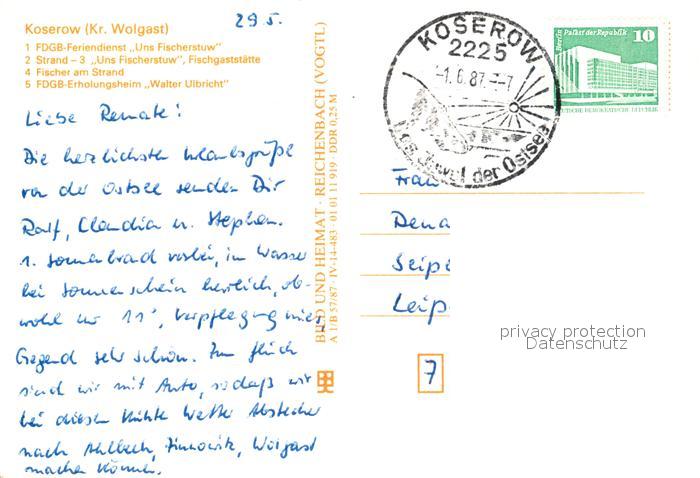 29.5.
Koserow (Kr. Wolgast)
1 FDGB-Feriendienst „Uns Fischerstuw"
2 Strand – 3 „Uns Fischerstuw", Fischgaststätte
4 Fischer am Strand
5 FDGB-Erholungsheim „Walter Ulbricht"
Liebe Renate!
Die herzlichsten Urlaubsgrüße
von der Ostsee senden Dir
Ralf, Claudia u. Stephan.
1. Sonnenbad vorbei, im Wasser
bei Sonnenschein herrlich, ob-
wohl nur 11°, Verpflegung mies,
Gegend sehr schön. Zum Glück
sind wir mit Auto, so daß wir
bei diesem kühlen Wetter Abstecher
nach Ahlbeck, Zinnowitz, Wolgast
machen können.
BILD UND HEIMAT · REICHENBACH (VOGTL)
A 1/B 57/87 · IV-14-483 · 01 01 11 919 · DDR 0,25 M
KOSEROW
2225
-1.6.87.-7
der Ostsee
Berlin Palast der Republik
10
DEUTSCHE DEMOKRATISCHE REPUBLIK
Frau
Rena
Seipe
Leip
7
privacy protection
Datenschutz